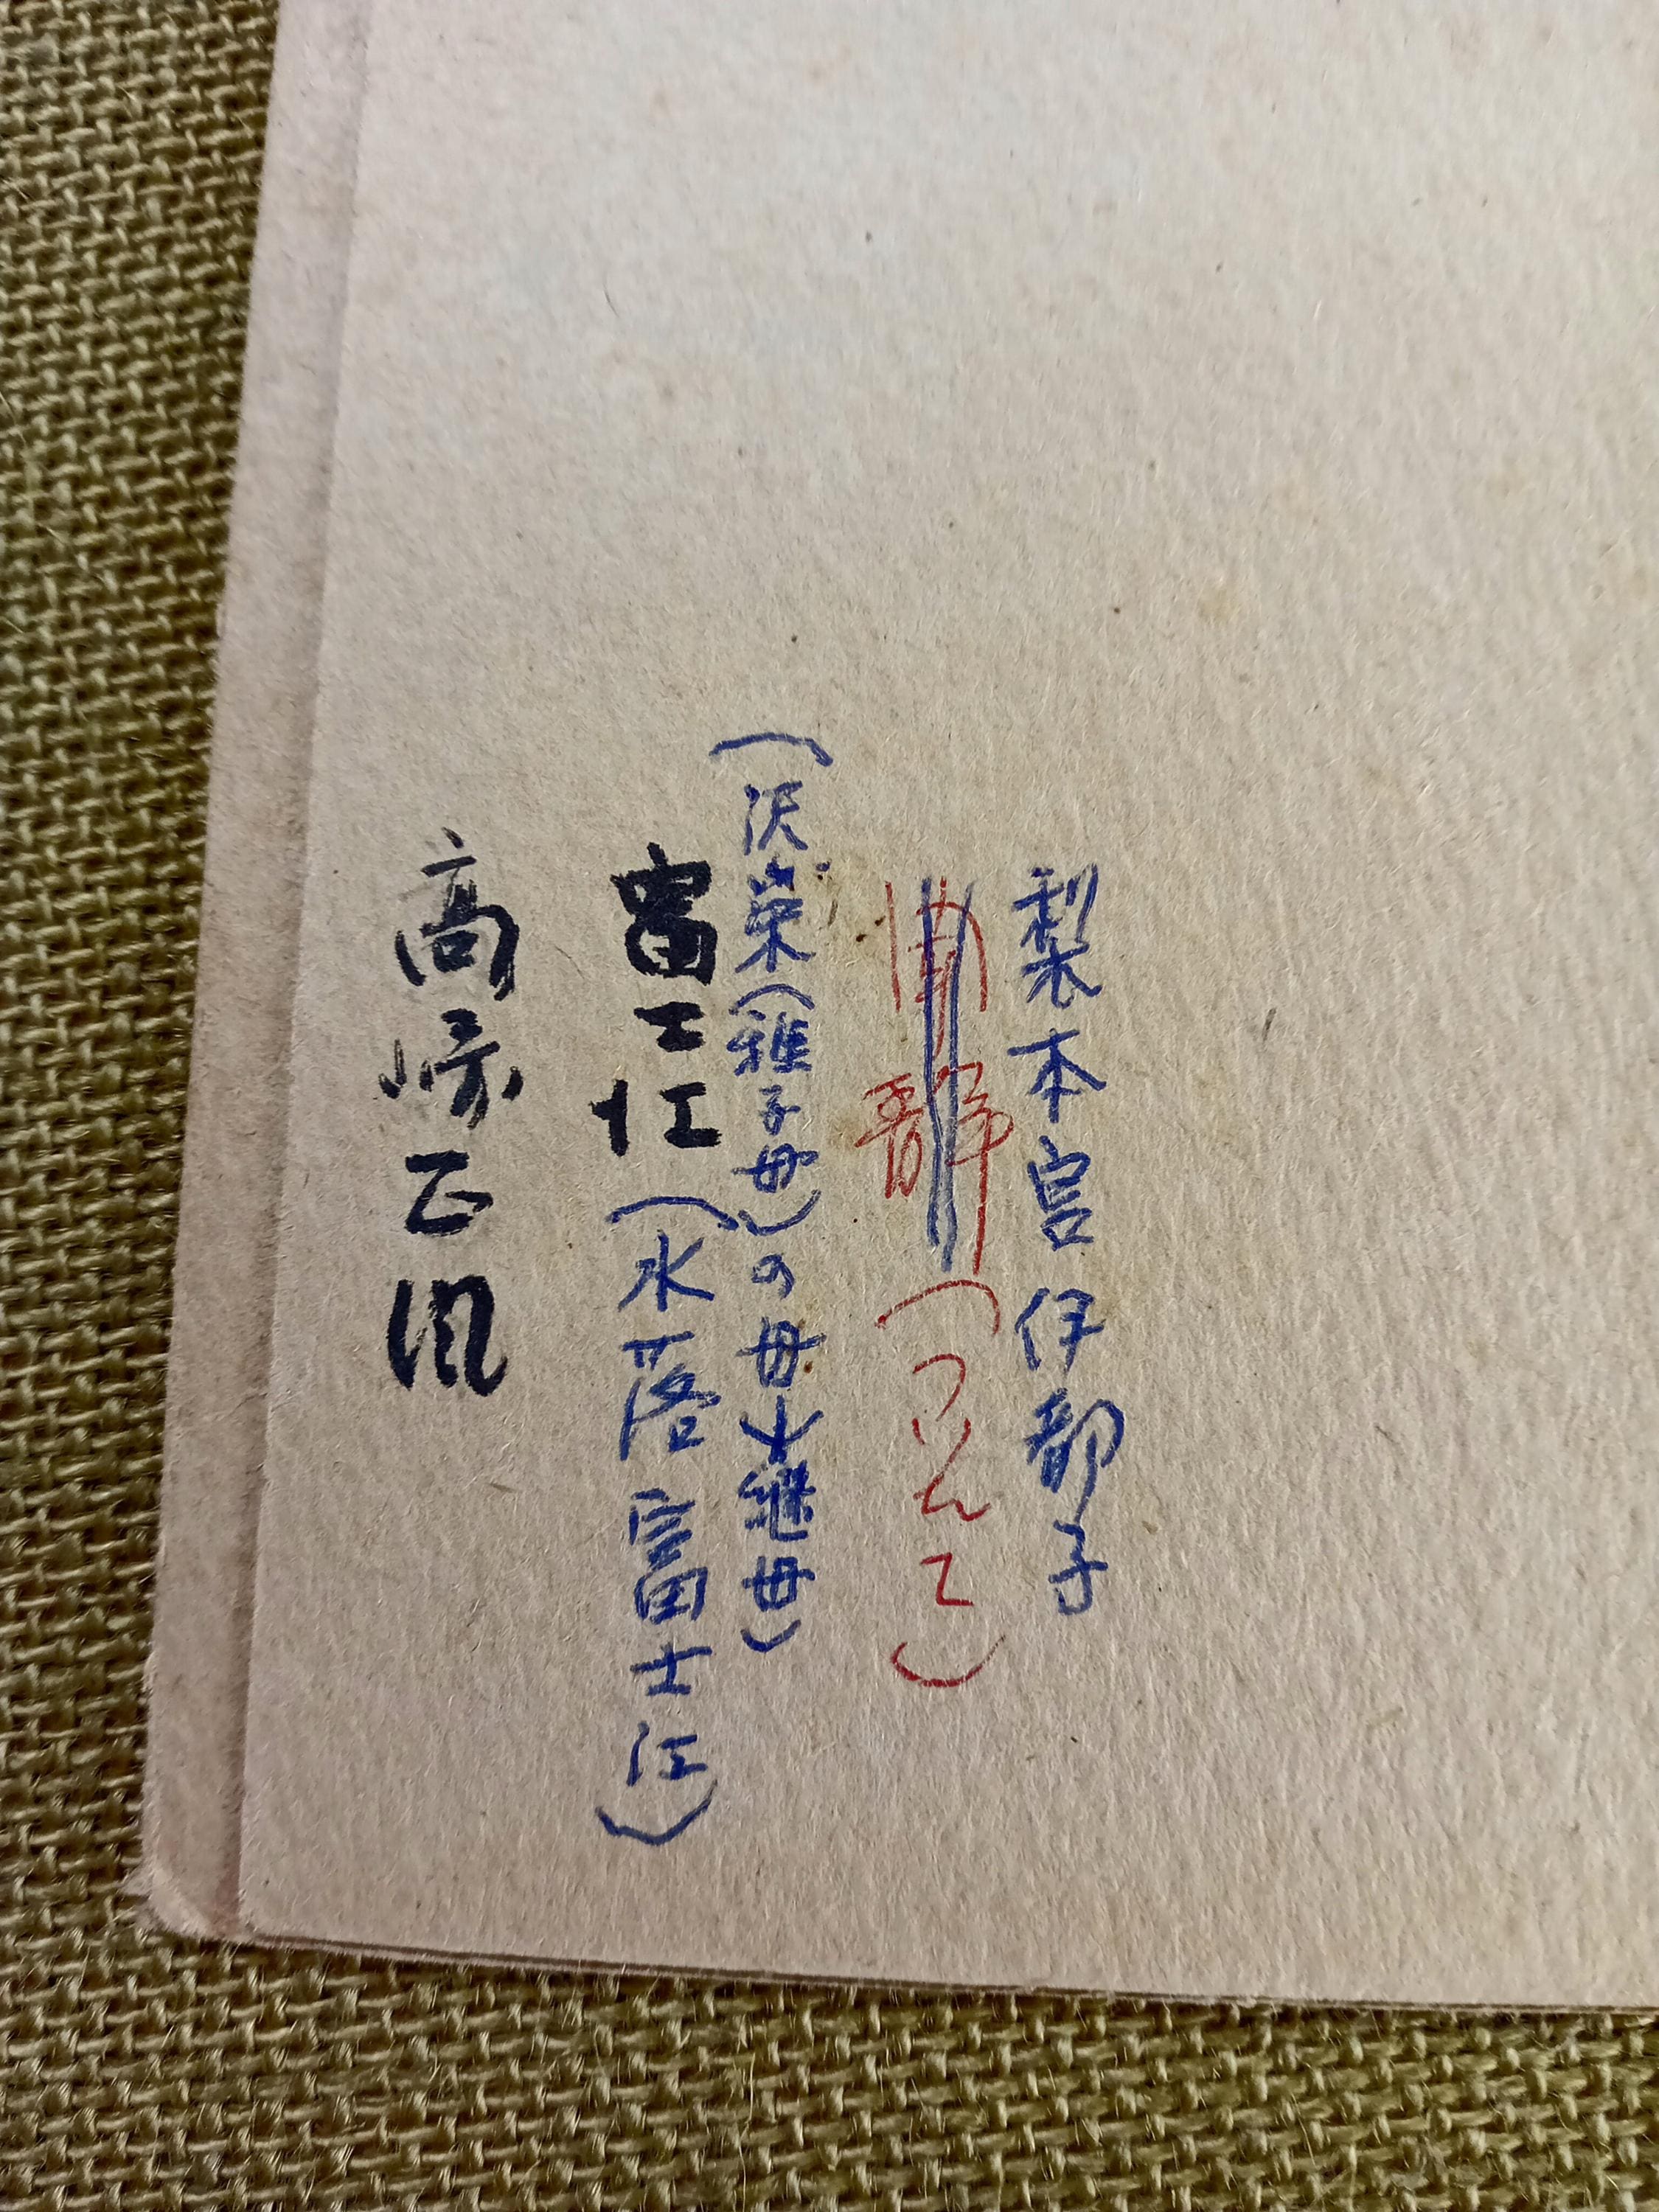 梨本宮伊都子
静(つんて)
(沢栄(雅子母)の母木継母)
富士江(水落富士江)
高崎正風